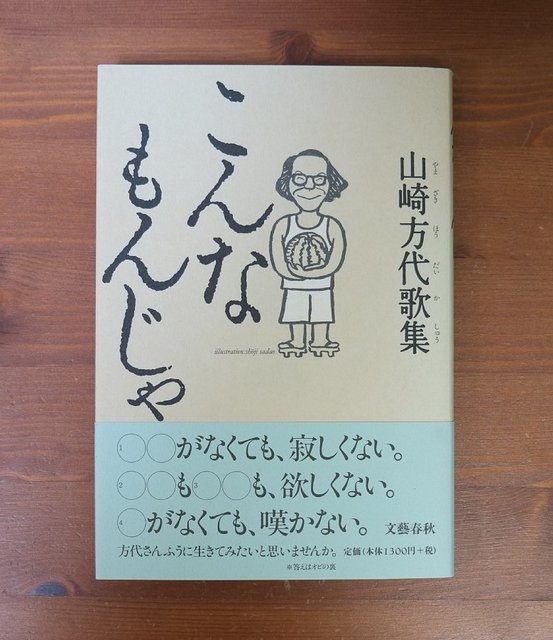 こんな
もんじゃ
山崎方代歌集
やま ざき ほう だい か しゅう
illustration: shōji sadao
①○○がなくても、寂しくない。
②○○も③○○も、欲しくない。
④○がなくても、嘆かない。
文藝春秋
方代さんふうに生きてみたいと思いませんか。 定価(本体1300円+税)
※答えはオビの裏